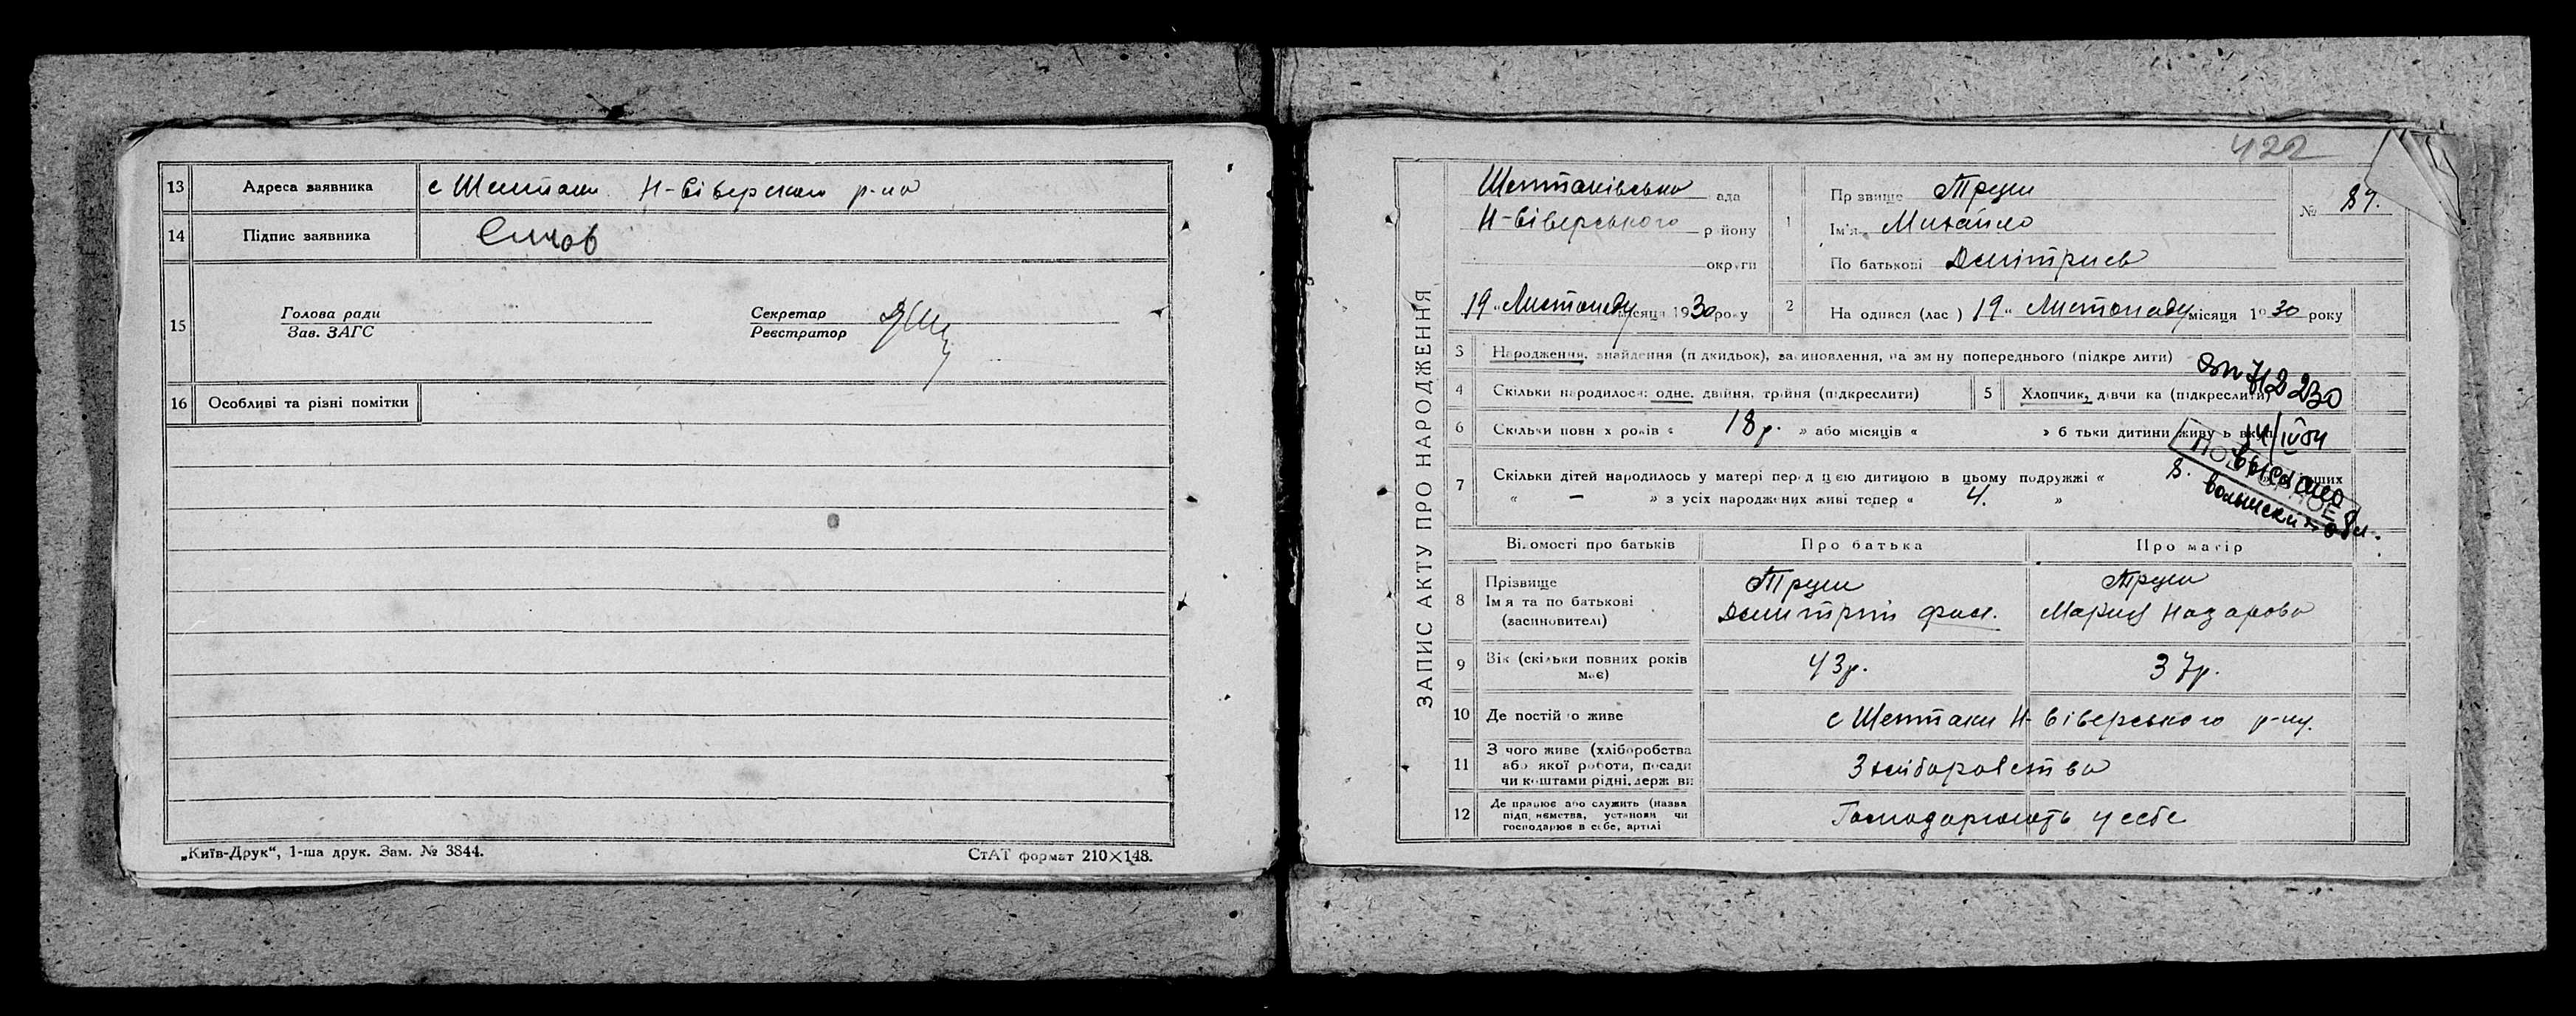 13 Адреса заявника с Шептаки Н-Сіверского р-на
14 Підпис заявника
15 Голова ради
Зав. ЗАГС
Секретар
Реєстратор
16 Особливі та різні помітки
„Київ-Друк“, 1-ша друк. Зам. № 3844.
СтАТ формат 210×148.
422
ЗАПИС АКТУ ПРО НАРОДЖЕННЯ
Шептаківська рада
Н-Сіверського району
округи
19 „ Листопаду місяця 1930 року
1 Прізвище Труш
Ім'я Михайло
По батькові Дмітриев
№ 87.
2 Народився (лась) 19 „ Листопаду місяця 1930 року
3 Народження, знайдення (підкидьок), засиновлення, на зміну попереднього (підкреслити)
4 Скільки народилося: одне, двійня, трійня (підкреслити)
5 Хлопчик, дівчинка (підкреслити)
6 Скільки повних років « 18 р. » або місяців « » батьки дитини живуть вкупі
7 Скільки дітей народилось у матері перед цією дитиною в цьому подружжі «
« — » з усіх народжених живі тепер « 4. »
ПОВТОРНОЕ
выслано
в. Волынский обл.
Відомості про батьків Про батька Про матір
8 Прізвище
Ім'я та по батькові
(засиновителі)
Труш
Дмитрий
Труш
Мария Назарова
9 Вік (скільки повних років
має)
43 р.
37 р.
10 Де постійно живе с Шептаки Н-Сіверського р-ну.
11 З чого живе (хліборобства
або якої роботи, посади
чи коштами рідні, держави
З хліборобства
12 Де працює або служить (назва
підприємства, установи чи
господарює в себе, артілі
Господарюють у себе